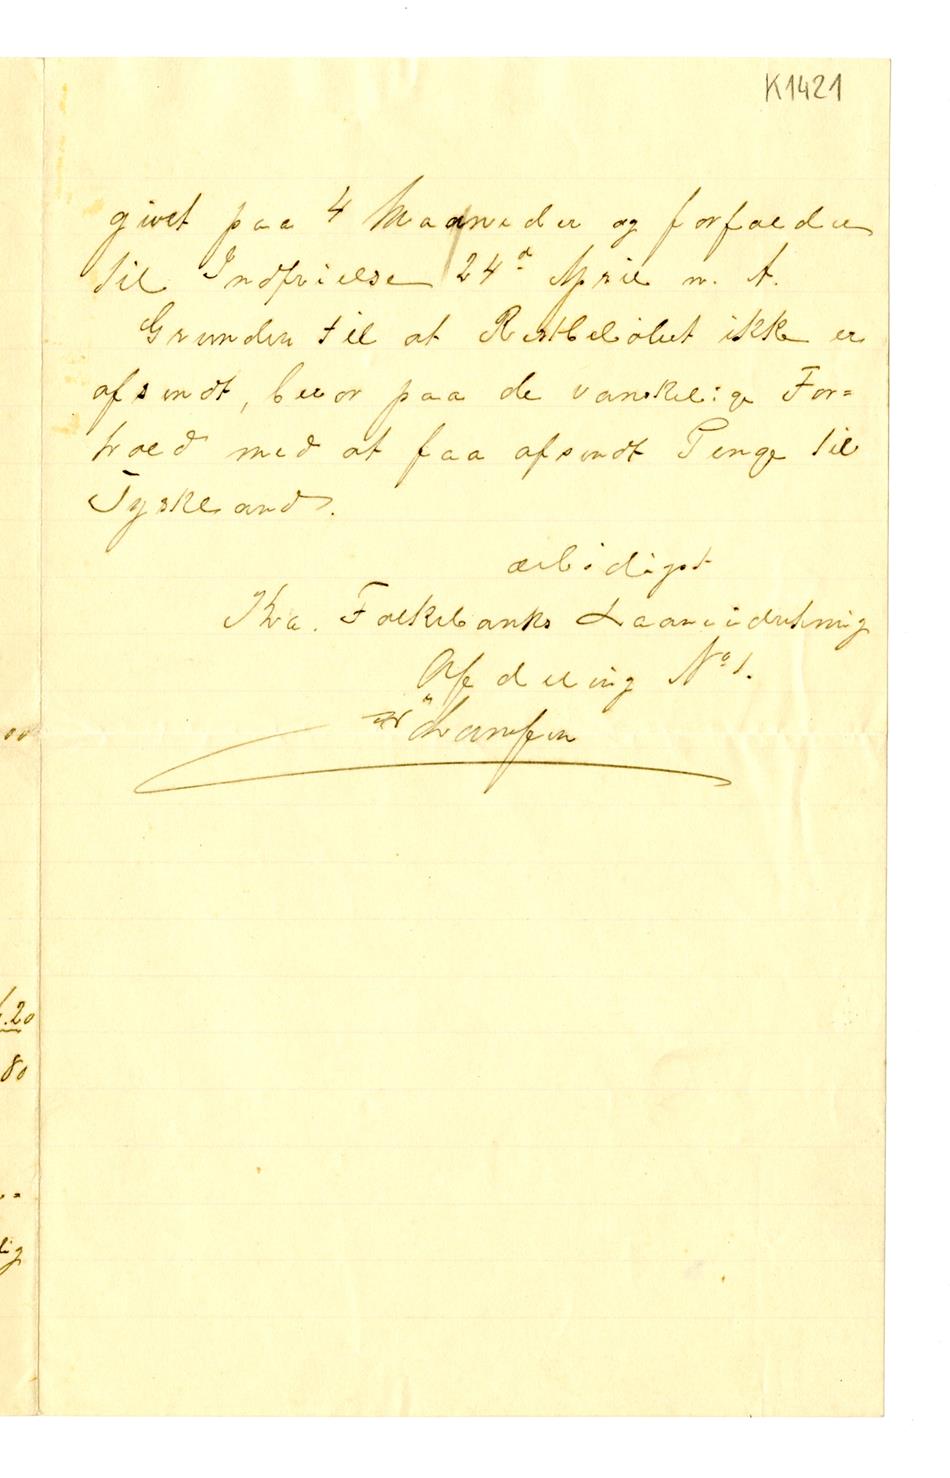 K1421
givet paa 4 Maaneder og forfalder
til Indfrielse 24d April n. A.
Grunden til at Restbeløbet ikke er
afsendt, beror paa de vanskelige For=
hold med at faa afsendt Penge til
Tyskland.
ærbødigst
Kra. Folkebanks Laaneindretning
Afdeling No 1.
Larsen
00
.20
80
lig